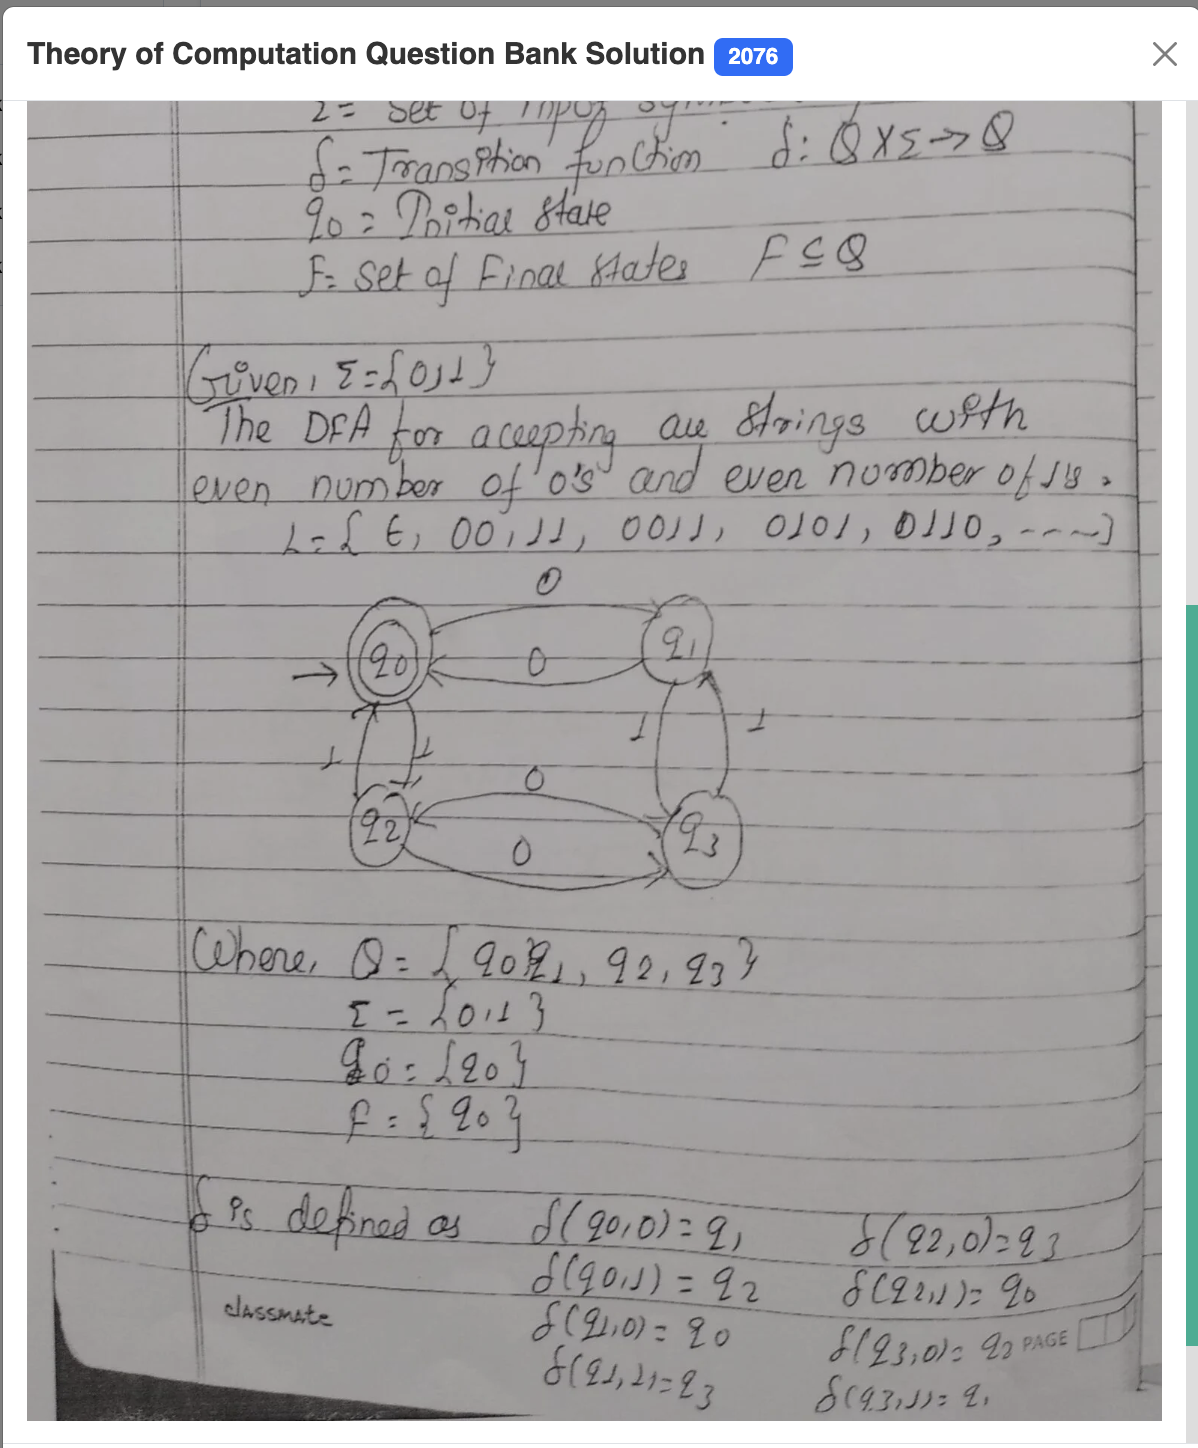 Theory of Computation Question Bank Solution 2076
Σ = Set of input
δ = Transition function δ: Q X Σ → Q
q0 = Initial state
F = Set of Final states F ⊆ Q
Given, Σ = {0,1}
The DFA for accepting all strings with
even number of 0's and even number of 1's.
L = { ϵ, 00, 11, 0011, 0101, 0110, ----}
0
q0 0 q1
1 1 1 1
0
q2 0 q3
Where, Q = {q0, q1, q2, q3}
Σ = {0,1}
q0 = {q0}
F = {q0}
δ is defined as δ(q0,0) = q1 δ(q2,0) = q3
δ(q0,1) = q2 δ(q2,1) = q0
classmate
δ(q1,0) = q0 δ(q3,0) = q2 PAGE
δ(q1,1) = q3 δ(q3,1) = q1